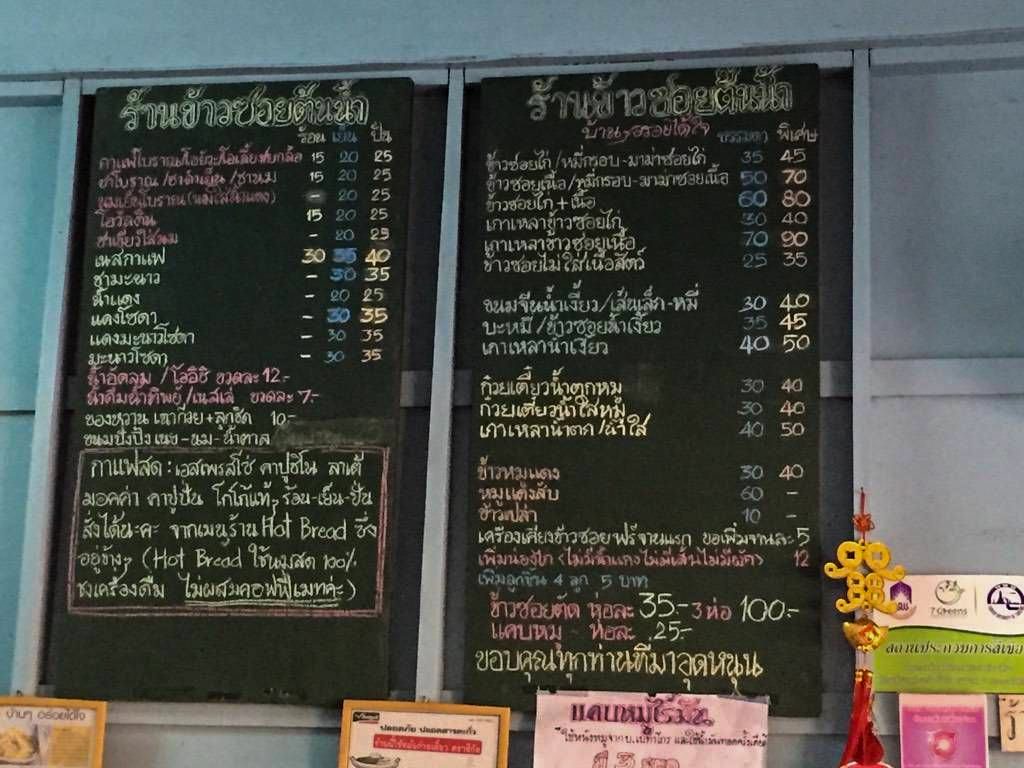 ร้านข้าวซอยต้นน้ำ
ร้อน เย็น ปั่น
กาแฟโบราณ/โอยัวะ/โอเลี้ยง 15 20 25
ชาโบราณ/ชาดำเย็น/ชานม 15 20 25
นมเย็นโบราณ - 20 25
โอวัลติน 15 20 25
ชาเขียวใส่นม - 20 25
เนสกาแฟ 30 35 40
ชามะนาว - 30 35
น้ำแดง - 20 25
แดงโซดา - 30 35
แดงมะนาวโซดา - 30 35
มะนาวโซดา - 30 35
น้ำอัดลม / โออิชิ ขวดละ 12.-
น้ำดื่มน้ำทิพย์/เนสเล่ ขวดละ 7.-
ของหวาน เฉาก๊วย+ลูกชิด 10.-
ขนมปังปิ้ง เนย-นม-น้ำตาล
กาแฟสด : เอสเพรสโซ่ คาปูชิโน ลาเต้
มอคค่า คาปูปั่น โกโก้แท้ๆ ร้อน-เย็น-ปั่น
สั่งได้นะคะ จากเมนูร้าน Hot Bread ซึ่ง
อยู่ข้างๆ (Hot Bread ใช้นมสด 100%
ชงเครื่องดื่ม ไม่ผสมคอฟฟี่เมทค่ะ)
ร้านข้าวซอยต้นน้ำ
บ้านๆ อร่อยได้ใจ ธรรมดา พิเศษ
ข้าวซอยไก่/หมี่กรอบ-มาม่าซอยไก่ 35 45
ข้าวซอยเนื้อ/หมี่กรอบ-มาม่าซอยเนื้อ 50 70
ข้าวซอยไก่+เนื้อ 60 80
เกาเหลาข้าวซอยไก่ 30 40
เกาเหลาข้าวซอยเนื้อ 70 90
ข้าวซอยไม่ใส่เนื้อสัตว์ 25 35
ขนมจีนน้ำเงี้ยว/เส้นเล็ก-หมี่ 30 40
บะหมี่/ข้าวซอยน้ำเงี้ยว 35 45
เกาเหลาน้ำเงี้ยว 40 50
ก๋วยเตี๋ยวน้ำตกหมู 30 40
ก๋วยเตี๋ยวน้ำใสหมู 30 40
เกาเหลาน้ำตก/น้ำใส 40 50
ข้าวหมูแดง 30 40
หมูแดงสับ 60 -
ข้าวเปล่า 10 -
เครื่องเคียงข้าวซอยฟรีจานแรก ขอเพิ่มจานละ 5
เพิ่มน่องไก่ 12
เพิ่มลูกชิ้น 4 ลูก 5 บาท
ข้าวซอยตัด ห่อละ 35.- 3 ห่อ 100.-
แคบหมู - ห่อละ 25.-
ขอบคุณทุกท่านที่มาอุดหนุน
บ้านๆ อร่อยได้ใจ
ปลอดภัย ปลอดสารตะกั่ว
แคบหมูไร้มัน
7 Greens